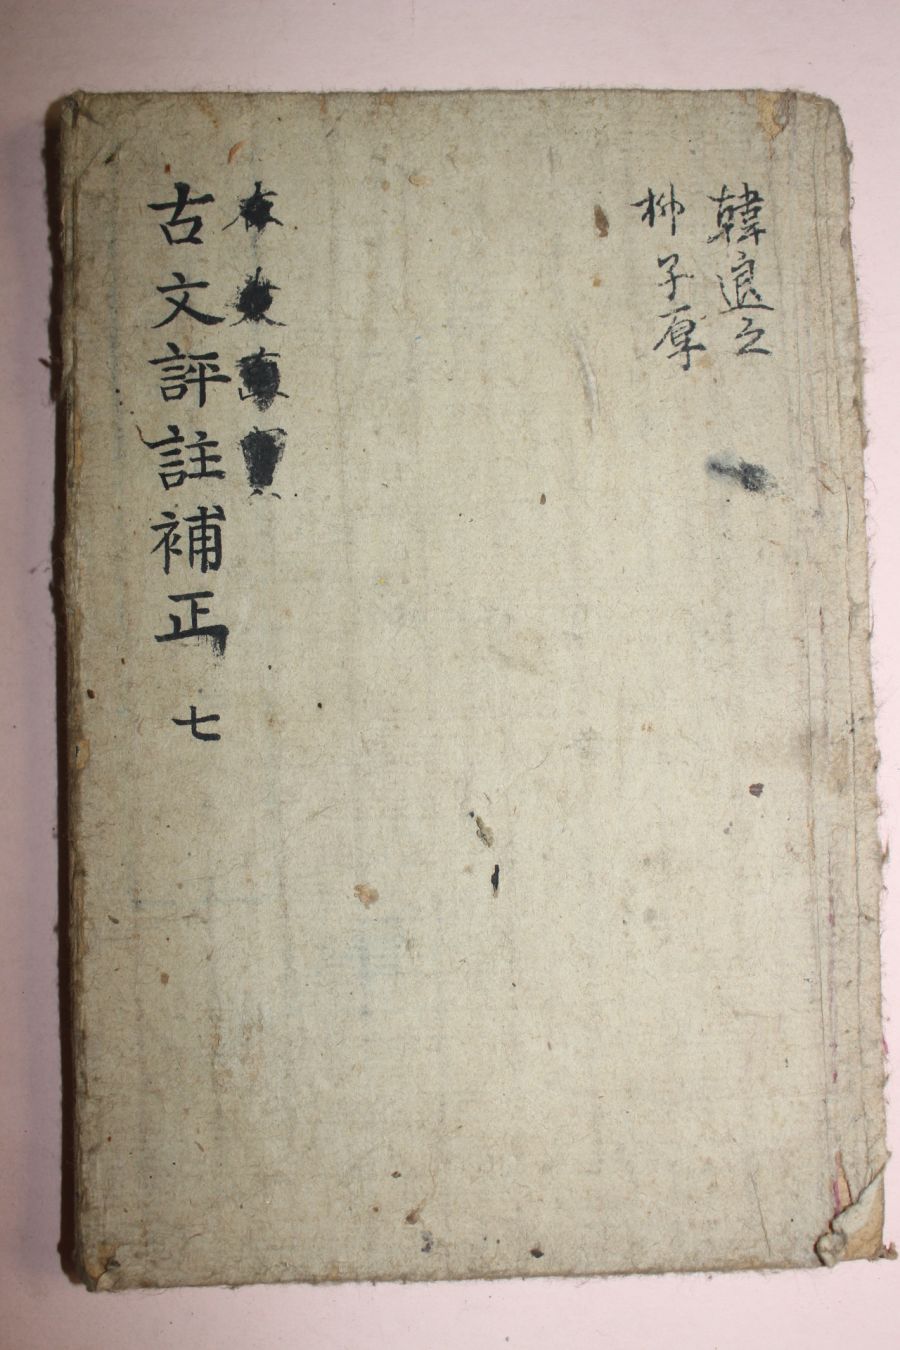 韓退之
柳子厚
古文評註補正 七